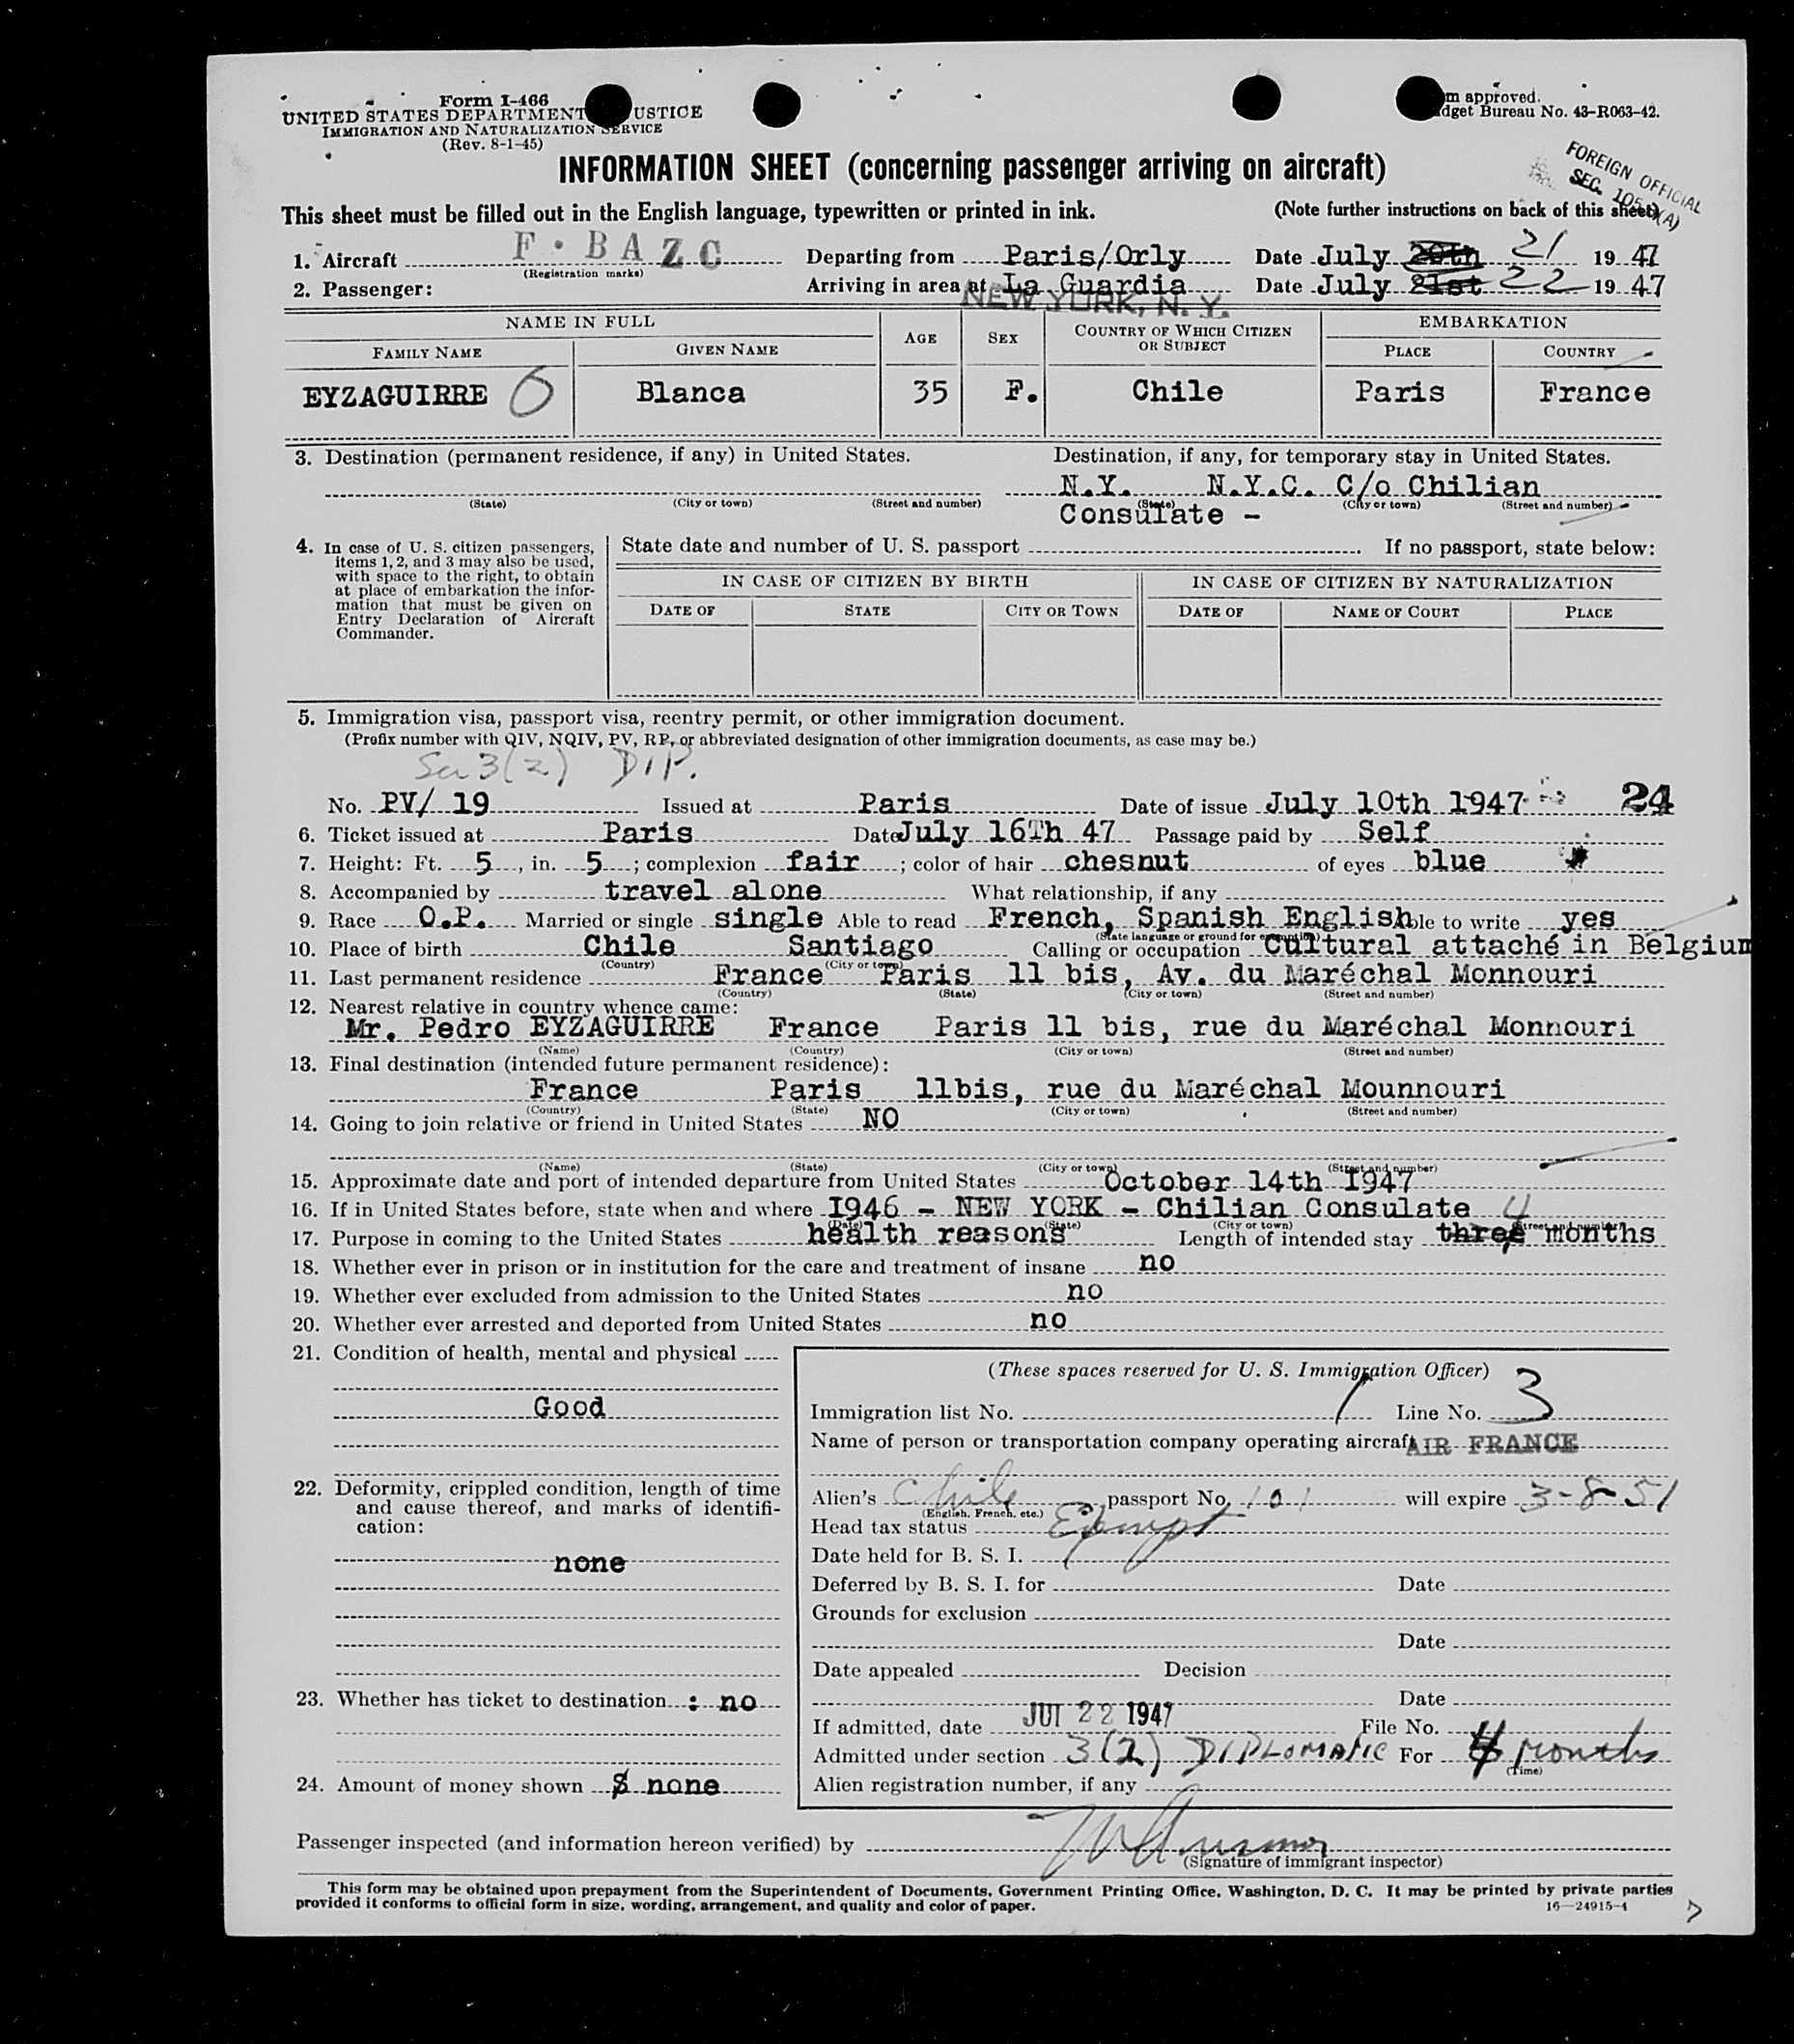 Form I-466
UNITED STATES DEPARTMENT USTICE
IMMIGRATION AND NATURALIZATION SERVICE
(Rev. 8-1-45)
m approved.
dget Bureau No. 43-R063-42.
INFORMATION SHEET (concerning passenger arriving on aircraft)
FOREIGN OFFICIAL
SEC. 105 (A)
This sheet must be filled out in the English language, typewritten or printed in ink. (Note further instructions on back of this sheet)
1. Aircraft F · B A Z C Departing from Paris/Orly Date July 20th 21 19 47
(Registration marks)
2. Passenger: Arriving in area at La Guardia Date July 21st 22 19 47
NEW YORK, N. Y.
NAME IN FULL AGE SEX COUNTRY OF WHICH CITIZEN OR SUBJECT EMBARKATION
FAMILY NAME GIVEN NAME PLACE COUNTRY
EYZAGUIRRE Blanca 35 F. Chile Paris France
3. Destination (permanent residence, if any) in United States. Destination, if any, for temporary stay in United States.
N.Y. N.Y.C. C/o Chilian
(State) (City or town) (Street and number) (State) (City or town) (Street and number)
Consulate -
4. In case of U. S. citizen passengers, items 1, 2, and 3 may also be used, with space to the right, to obtain at place of embarkation the information that must be given on Entry Declaration of Aircraft Commander.
State date and number of U. S. passport If no passport, state below:
IN CASE OF CITIZEN BY BIRTH IN CASE OF CITIZEN BY NATURALIZATION
DATE OF STATE CITY OR TOWN DATE OF NAME OF COURT PLACE
5. Immigration visa, passport visa, reentry permit, or other immigration document.
(Prefix number with QIV, NQIV, PV, RP, or abbreviated designation of other immigration documents, as case may be.)
3(2) DIP.
No. PV/ 19 Issued at Paris Date of issue July 10th 1947 24
6. Ticket issued at Paris Date July 16Th 47 Passage paid by Self
7. Height: Ft. 5, in. 5; complexion fair; color of hair chesnut of eyes blue
8. Accompanied by travel alone What relationship, if any
9. Race O.P. Married or single single Able to read French, Spanish English ble to write yes
(State language or ground for exemption)
10. Place of birth Chile Santiago Calling or occupation Cultural attaché in Belgium
(Country) (City or town)
11. Last permanent residence France Paris 11 bis, Av. du Maréchal Monnouri
(Country) (State) (City or town) (Street and number)
12. Nearest relative in country whence came:
Mr. Pedro EYZAGUIRRE France Paris 11 bis, rue du Maréchal Monnouri
(Name) (Country) (City or town) (Street and number)
13. Final destination (intended future permanent residence):
France Paris 11bis, rue du Maréchal Mounnouri
(Country) (State) (City or town) (Street and number)
14. Going to join relative or friend in United States NO
(Name) (State) (City or town) (Street and number)
15. Approximate date and port of intended departure from United States October 14th 1947
16. If in United States before, state when and where 1946 - NEW YORK - Chilian Consulate
(Date) (State) (City or town) (Street and number)
17. Purpose in coming to the United States health reasons Length of intended stay three 4 months
18. Whether ever in prison or in institution for the care and treatment of insane no
19. Whether ever excluded from admission to the United States no
20. Whether ever arrested and deported from United States no
21. Condition of health, mental and physical
Good
22. Deformity, crippled condition, length of time and cause thereof, and marks of identification:
none
23. Whether has ticket to destination : no
24. Amount of money shown $ none
(These spaces reserved for U. S. Immigration Officer)
Immigration list No. 1 Line No. 3
Name of person or transportation company operating aircraft AIR FRANCE
Alien's Chile passport No. 101 will expire 3-8-51
(English, French, etc.)
Head tax status Exempt
Date held for B. S. I.
Deferred by B. S. I. for Date
Grounds for exclusion
Date
Date appealed Decision
Date
If admitted, date JUL 22 1947 File No.
Admitted under section 3(2) DIPLOMATIC For 4 months
(Time)
Alien registration number, if any
Passenger inspected (and information hereon verified) by
(Signature of immigrant inspector)
This form may be obtained upon prepayment from the Superintendent of Documents, Government Printing Office, Washington, D. C. It may be printed by private parties
provided it conforms to official form in size, wording, arrangement, and quality and color of paper.
16—24915-1